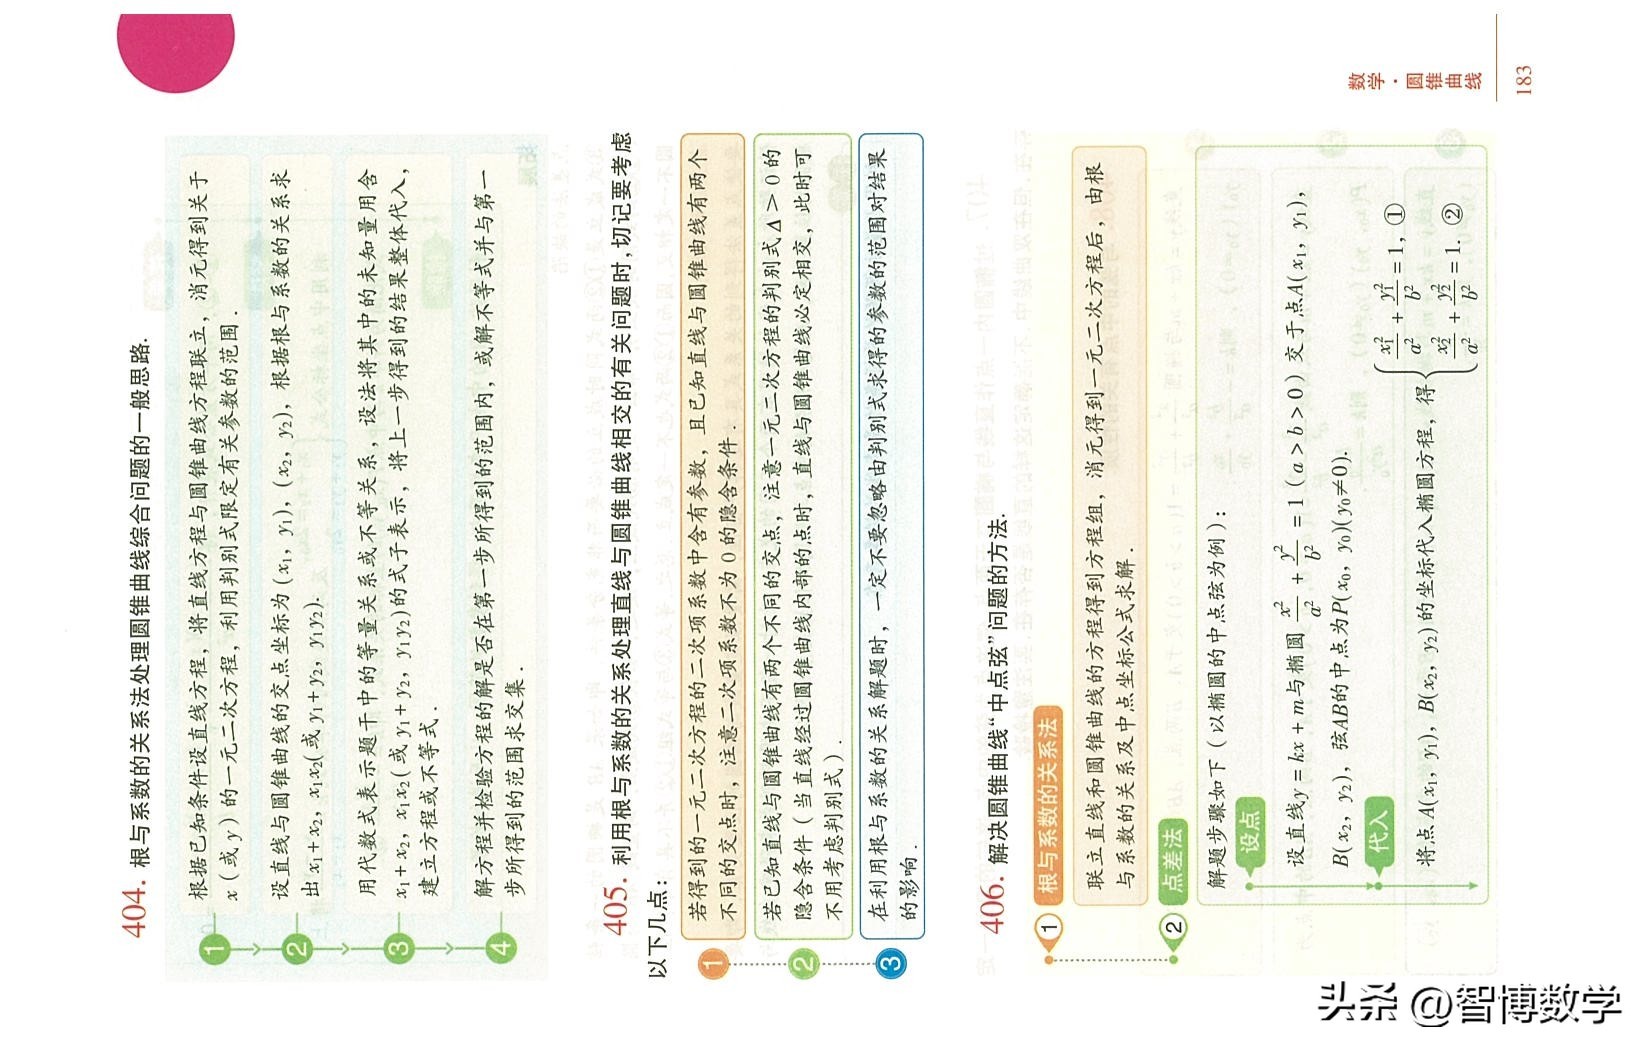 404. 根与系数的关系法处理圆锥曲线综合问题的一般思路.
1 根据已知条件设直线方程，将直线方程与圆锥曲线方程联立，消元得到关于
x（或y）的一元二次方程，利用判别式限定有关参数的范围.
2 设直线与圆锥曲线的交点坐标为(x₁, y₁)，(x₂, y₂)，根据根与系数的关系求
出x₁+x₂, x₁x₂(或y₁+y₂, y₁y₂).
3 用代数式表示题干中的等量关系或不等关系，设法将其中的未知量用含
x₁+x₂, x₁x₂(或y₁+y₂, y₁y₂)的式子表示，将上一步得到的结果整体代入，
建立方程或不等式.
4 解方程并检验方程的解是否在第一步所得到的范围内，或解不等式并与第一
步所得到的范围求交集.
405. 利用根与系数的关系处理直线与圆锥曲线相交的有关问题时,切记要考虑
以下几点：
1 若得到的一元二次方程的二次项系数中含有参数，且已知直线与圆锥曲线有两个
不同的交点时，注意二次项系数不为0的隐含条件.
2 若已知直线与圆锥曲线有两个不同的交点，注意一元二次方程的判别式Δ>0的
隐含条件（当直线经过圆锥曲线内部的点时，直线与圆锥曲线必定相交，此时可
不用考虑判别式）.
3 在利用根与系数的关系解题时，一定不要忽略由判别式求得的参数的范围对结果
的影响.
406. 解决圆锥曲线“中点弦”问题的方法.
1 根与系数的关系法
联立直线和圆锥曲线的方程得到方程组，消元得到一元二次方程后，由根
与系数的关系及中点坐标公式求解.
2 点差法
解题步骤如下（以椭圆的中点弦为例）：
设点
设直线y=kx+m与椭圆x²/a²+y²/b²=1(a>b>0)交于点A(x₁, y₁)，
B(x₂, y₂)，弦AB的中点为P(x₀, y₀)(y₀≠0).
代入
将点A(x₁, y₁)，B(x₂, y₂)的坐标代入椭圆方程，得{x₁²/a²+y₁²/b²=1, ①
x₂²/a²+y₂²/b²=1. ②
数学·圆锥曲线
183
头条 @智博数学